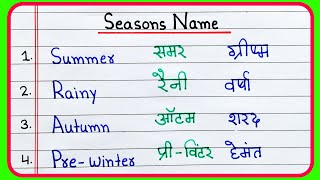 Seasons Name
1. Summer समर ग्रीष्म
2. Rainy रैनी वर्षा
3. Autumn ऑटम शरद
4. Pre-winter प्री-विंटर हेमंत